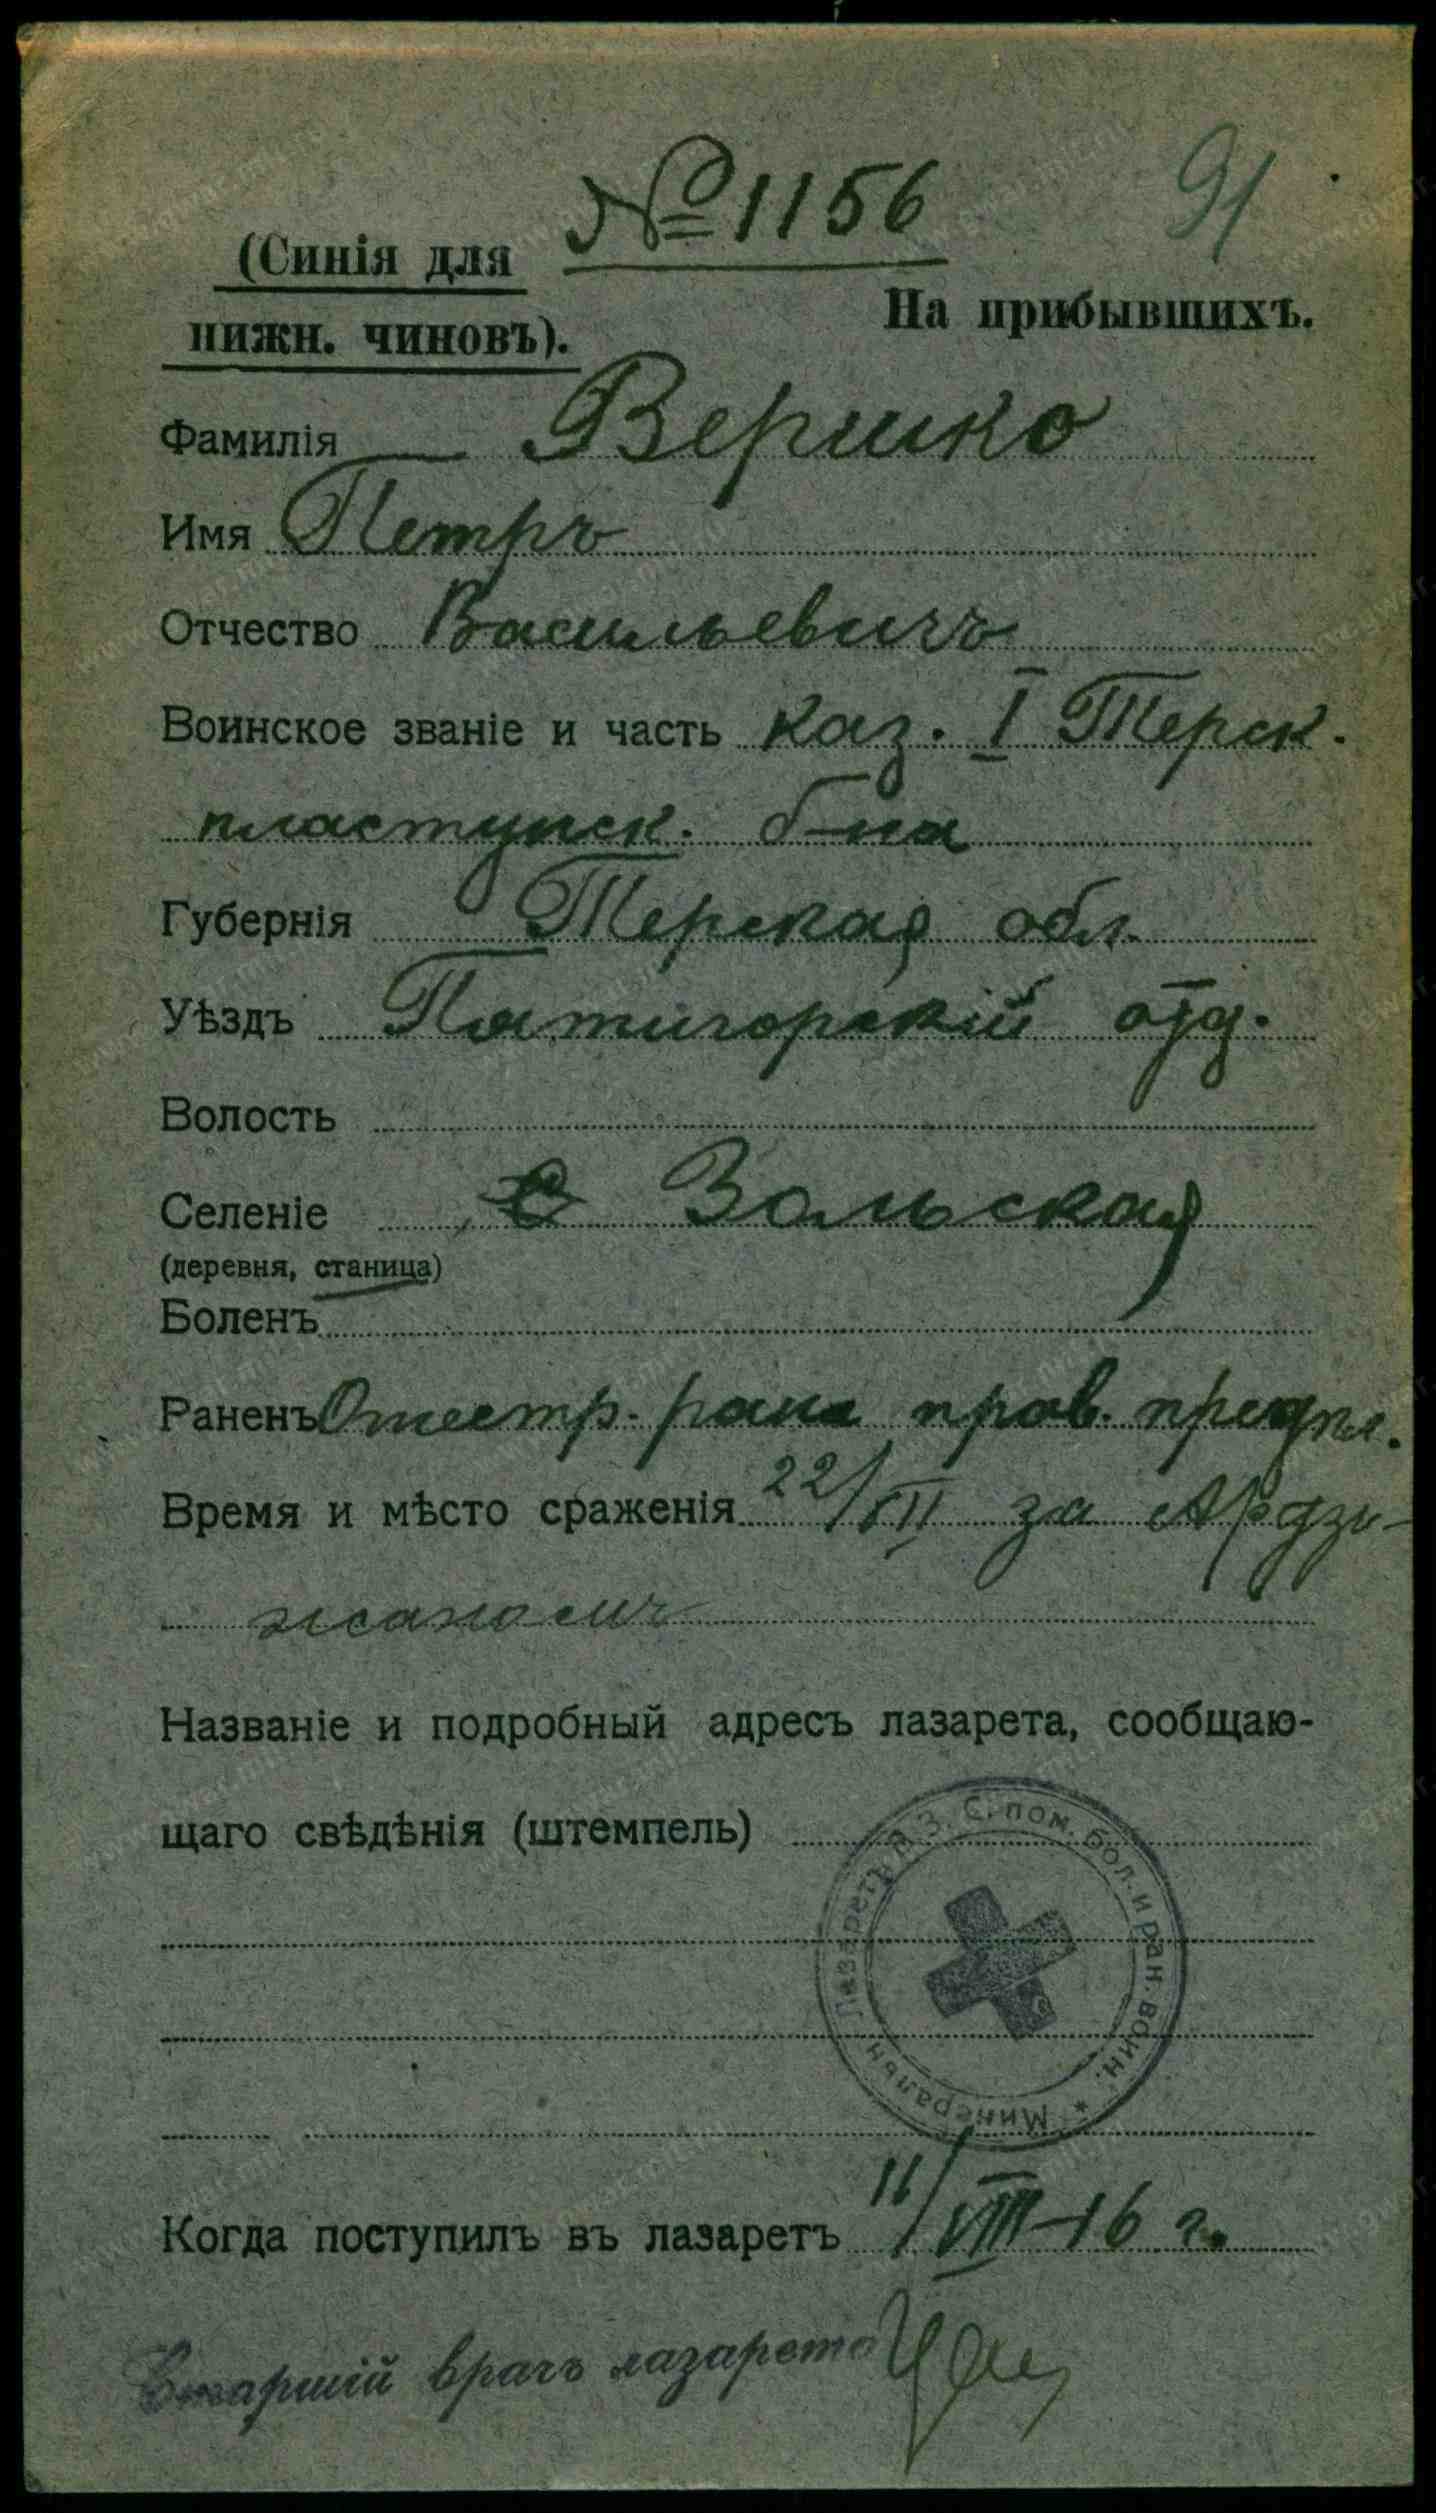 № 1156
91
(Синія для
нижн. чиновъ).
На прибывшихъ.
Фамилія Вершко
Имя Петръ
Отчество Васильевичъ
Воинское званіе и часть каз. I Терск.
пластунск. б-на
Губернія Терская обл.
Уѣздъ Пятигорскій отд.
Волость
Селеніе с Зольская
(деревня, станица)
Боленъ
Раненъ Огнестр. рана прав. предпл.
Время и мѣсто сраженія 22/VII за Ардзи-
жаномъ
Названіе и подробный адресъ лазарета, сообщаю-
щаго свѣдѣнія (штемпель)
Минеральн Лазаретъ В. З. С. пом. бол. и ран. воин. *
Когда поступилъ въ лазаретъ 11/VIII-16 г.
Старшій врачъ лазарета